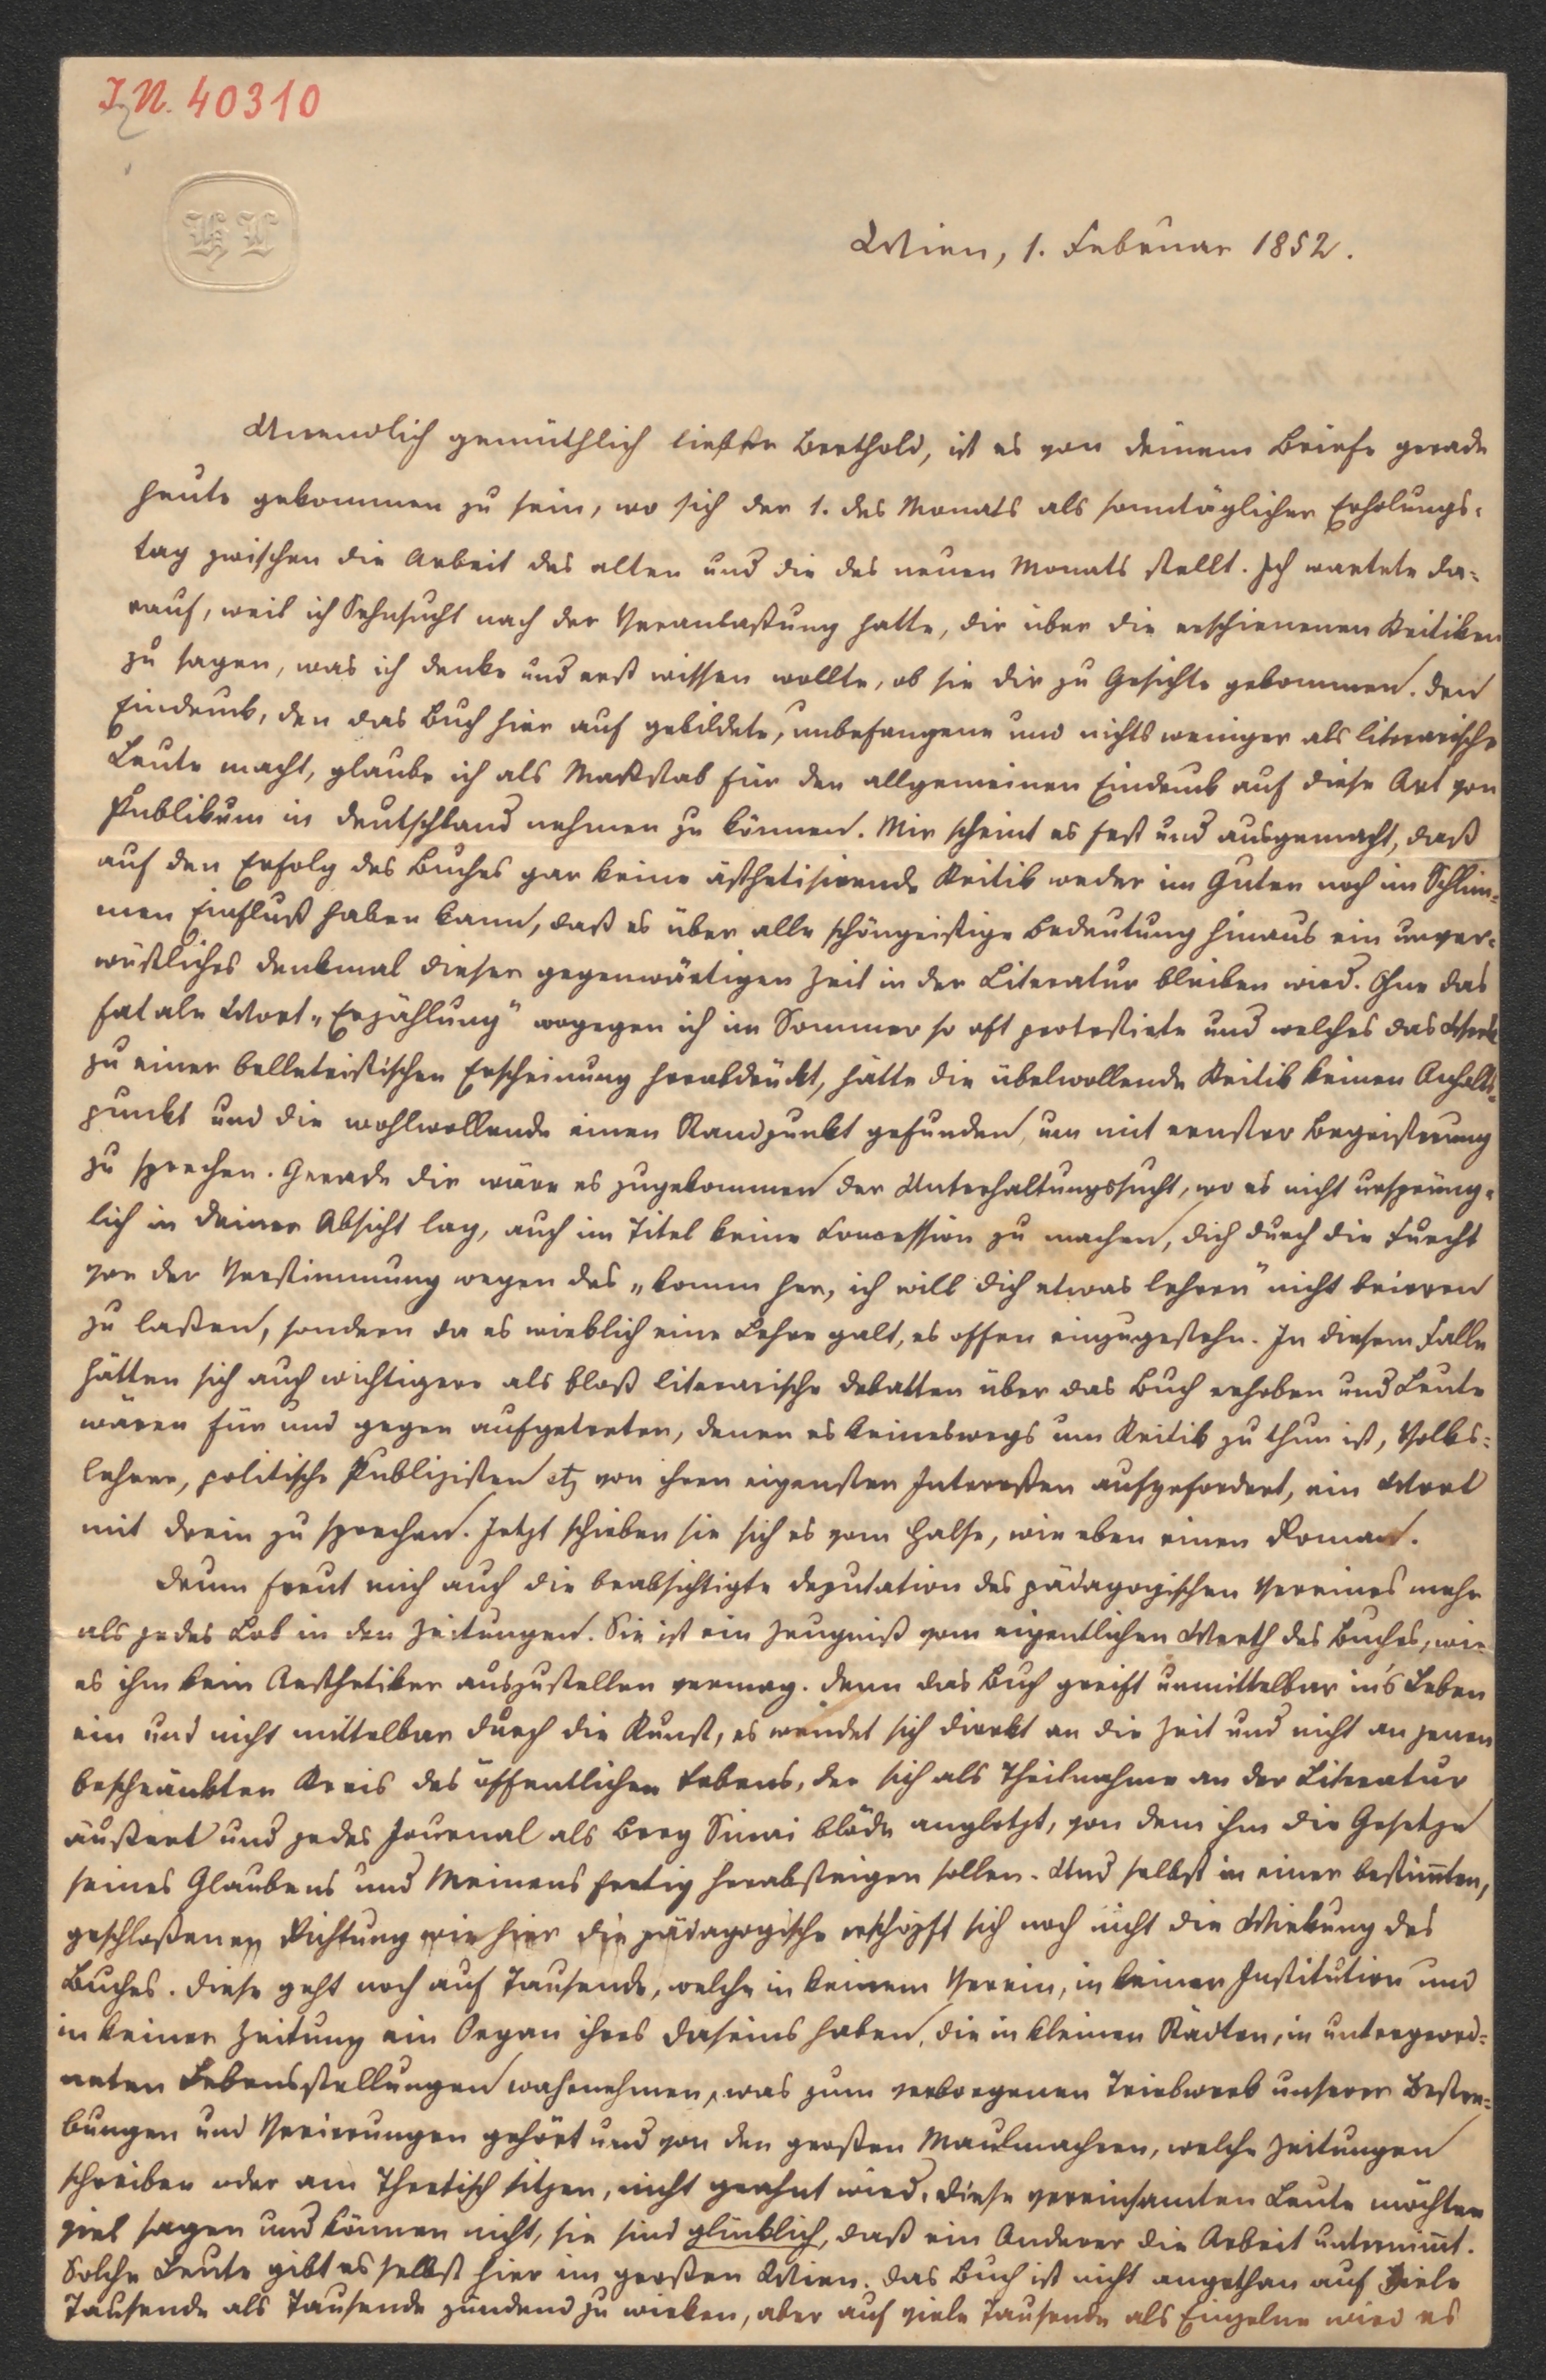 I. N. 40310
HL
Wien, 1. Februar 1852.
Unendlich gemüthlich liebster Berthold, ist es von deinem Briefe gerade
heute gekommen zu sein, wo sich der 1. des Monats als sonntäglicher Erholungs-
tag zwischen die Arbeit des alten und die des neuen Monats stellt. Ich wartete da-
rauf, weil ich Sehnsucht nach der Veranlaßung hatte, dir über die erschienenen Kritiken
zu sagen, was ich denke und erst wissen wollte, ob sie dir zu Gesichte gekommen. Den
Eindruck, den das Buch hier auf gebildete, unbefangene und nichts weniger als literarische
Leute macht, glaube ich als Maßstab für den allgemeinen Eindruck auf diese Art von
Publikum in Deutschland nehmen zu können. Mir scheint es fest und ausgemacht, daß
auf den Erfolg des Buches gar keine ästhetisirende Kritik weder im Guten noch im Schlim-
men Einfluß haben kann, daß es über alle schöngeistige Bedeutung hinaus ein unver-
wüstliches Denkmal dieser gegenwärtigen Zeit in der Literatur bleiben wird. Ohne das
fatale Wort „Erzählung" wogegen ich im Sommer so oft protestirte und welches das Werk
zu einer belletristischen Erscheinung herabdrückt, hätte die übelwollende Kritik keinen Anhalts-
punkt und die wohlwollende einen Standpunkt gefunden, um mit ernster Begeisterung
zu sprechen. Gerade dir wäre es zugekommen der Unterhaltungssucht, wo es nicht ursprüng-
lich in deiner Absicht lag, auch im Titel keine Concession zu machen, dich durch die Furcht
vor der Verstimmung wegen des „komm her, ich will dich etwas lehren" nicht beirren
zu laßen, sondern da es wirklich eine Lehre galt, es offen einzugestehn. In diesem Falle
hätten sich auch wichtigere als bloß literarische Debatten über das Buch erhoben und Leute
wären für und gegen aufgetreten, denen es keineswegs um Kritik zu thun ist, Volks-
lehrer, politische Publizisten etz von ihren eigensten Intereßen aufgefordert, ein Wort
mit drein zu sprechen. Jetzt schieben sie sich es vom Halse, wie eben einen Roman.
Drum freut mich auch die beabsichtigte Deputation des pädagogischen Vereines mehr
als jedes Lob in den Zeitungen. Sie ist ein Zeugniß vom eigentlichen Werth des Buches, wie
es ihm kein Aesthetiker auszustellen vermag. Denn das Buch greift unmittelbar in's Leben
ein und nicht mittelbar durch die Kunst, es wendet sich direkt an die Zeit und nicht an jenen
beschränkten Kreis des öffentlichen Lebens, der sich als Theilnahme an der Literatur
äußert und jedes Journal als Berg Sinai blöde anglotzt, von dem ihm die Gesetze
seines Glaubens und Meinens fertig herabsteigen sollen. Und selbst in einer bestim̄ten,
geschloßenen Richtung wie hier die pädagogische erschöpft sich noch nicht die Wirkung des
Buches. Diese geht noch auf Tausende, welche in keinem Verein, in keiner Institution und
in keiner Zeitung ein Organ ihres Daseins haben, die in kleinen Städten, in untergeord-
neten Lebensstellungen wahrnehmen, was zum verborgenen Triebwerk unserer Bestre-
bungen und Verirrungen gehört und von den großen Maulmachern, welche Zeitungen
schreiben oder am Theetisch sitzen, nicht geahnt wird. Diese vereinsamten Leute möchten
viel sagen und können nicht, sie sind glücklich, daß ein Anderer die Arbeit unternim̄t.
Solche Leute gibt es selbst hier im großen Wien. Das Buch ist nicht angethan auf viele
Tausende als Tausende zündend zu wirken, aber auf viele Tausende als Einzelne wird es